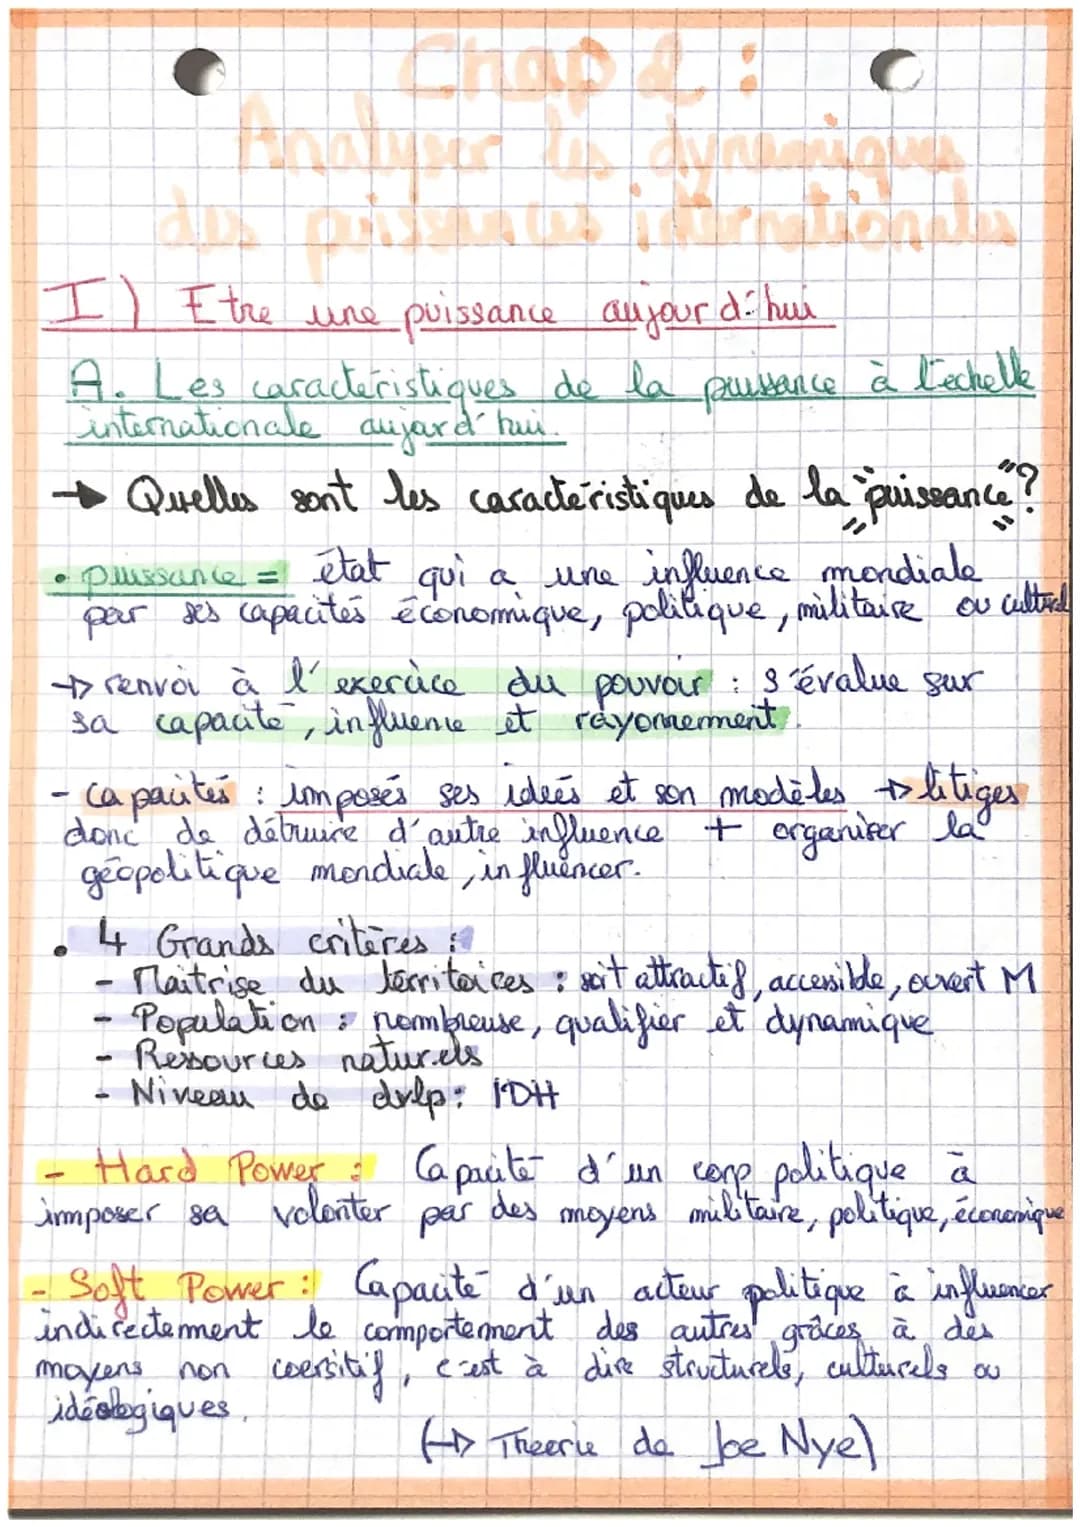 Chap 2 :
Analyser les dynamiques
des puissances internationales
I) Etre une puissance aujourd'hui
A. Les caractéristiques de la puissance à l'échelle
internationale aujourd'hui.
→ Quelles sont les caractéristiques de la "puissance"?
• puissance = état qui a une influence mondiale
par ses capacités économique, politique, militaire ou culturel
→ renvoi à l'exercice du pouvoir : s'évalue sur
sa capacité, influence et rayonnement.
- capacités : imposés ses ideés et son modèles → litiges
donc de détruire d'autre influence + organiser la
géopolitique mondiale, influencer.
• 4 Grands critères :
- Maitrise du térritoires : soit attractif, accessible, ouvert M
- Population : nombreuse, qualifier et dynamique
- Ressources naturels
- Niveau de dvlp : IDH
- Hard Power : Capacité d'un corp politique à
imposer sa volonter par des moyens militaire, politique, économique
- Soft Power : Capacité d'un acteur politique à influencer
indirectement le comportement des autres grâces à des
moyens non coersitif, c'est à dire structurels, culturels ou
idéologiques.
(→ Theorie de Joe Nye)